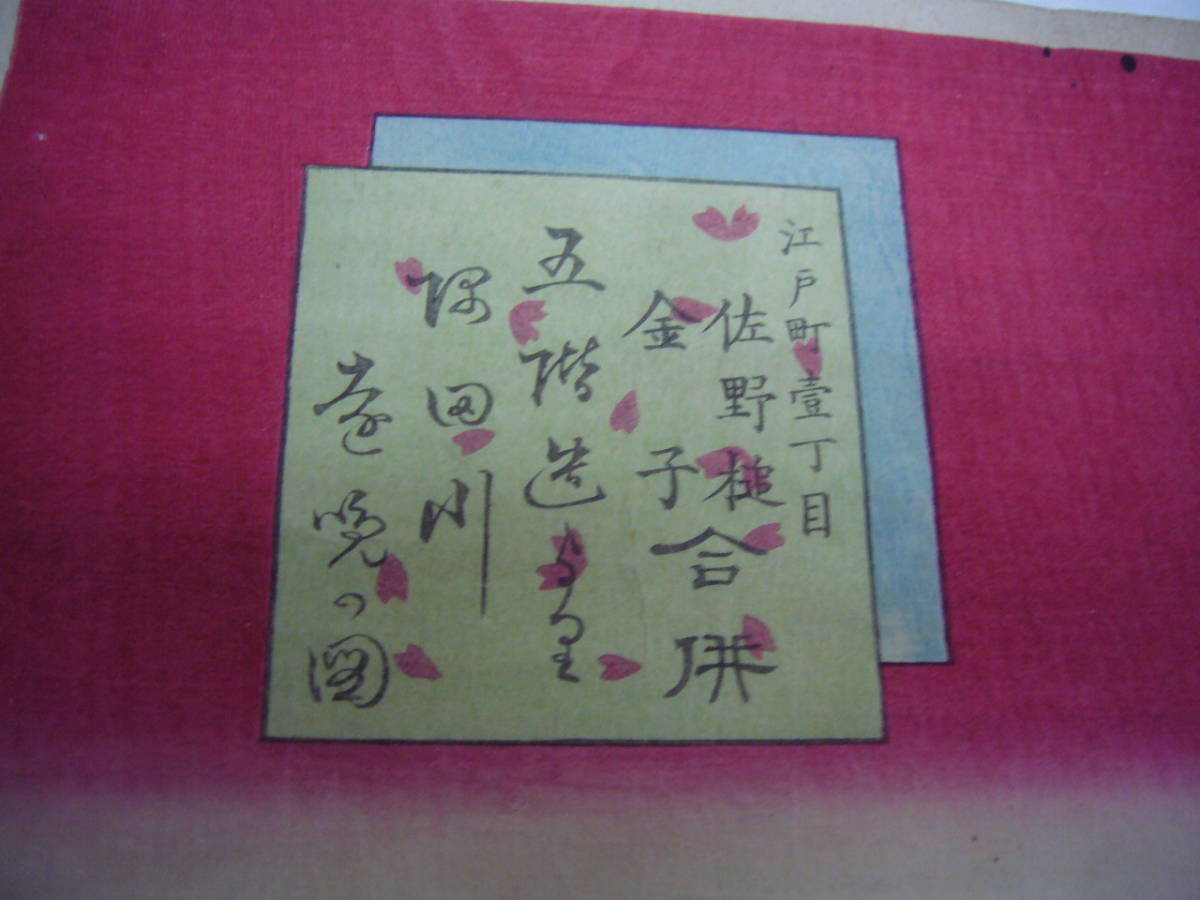 江戸町壹丁目
佐野槌
金子
合併
五階造より
隅田川
遠晩の図